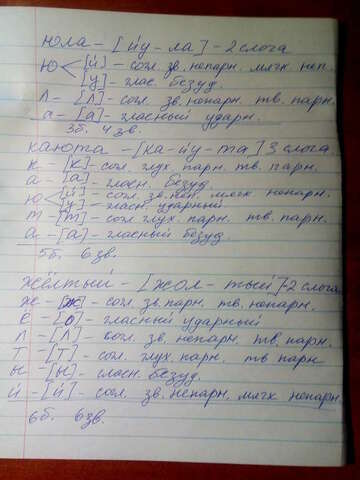 юла - [йу - ла] - 2 слога
ю < [й] - согл. зв. непарн. мягк. неп.
[у] - глас. безуд.
л - [л] - согл. зв. непарн. тв. парн.
а - [а] - гласный ударн.
3б. 4 зв.
каюта - [ка - йу - та] 3 слога
к - [к] - согл. глух. парн. тв. парн.
а - [а] - гласн. безуд.
ю < [й] - согл. зв. неп. мягк. непарн.
[у] - гласн. ударный
т - [т] - согл. глух. парн. тв. парн.
а - [а] - гласный безуд.
5б. 6 зв.
жёлтый - [жол - тый] - 2 слога
ж - [ж] - согл. зв. парн. тв. непарн.
ё - [о] - гласный ударный
л - [л] - согл. зв. непарн. тв. парн.
т - [т] - согл. глух. парн. тв парн
ы - [ы] - гласн. безуд.
й - [й] - согл. зв. непарн. мягк. непарн.
6б 6зв.